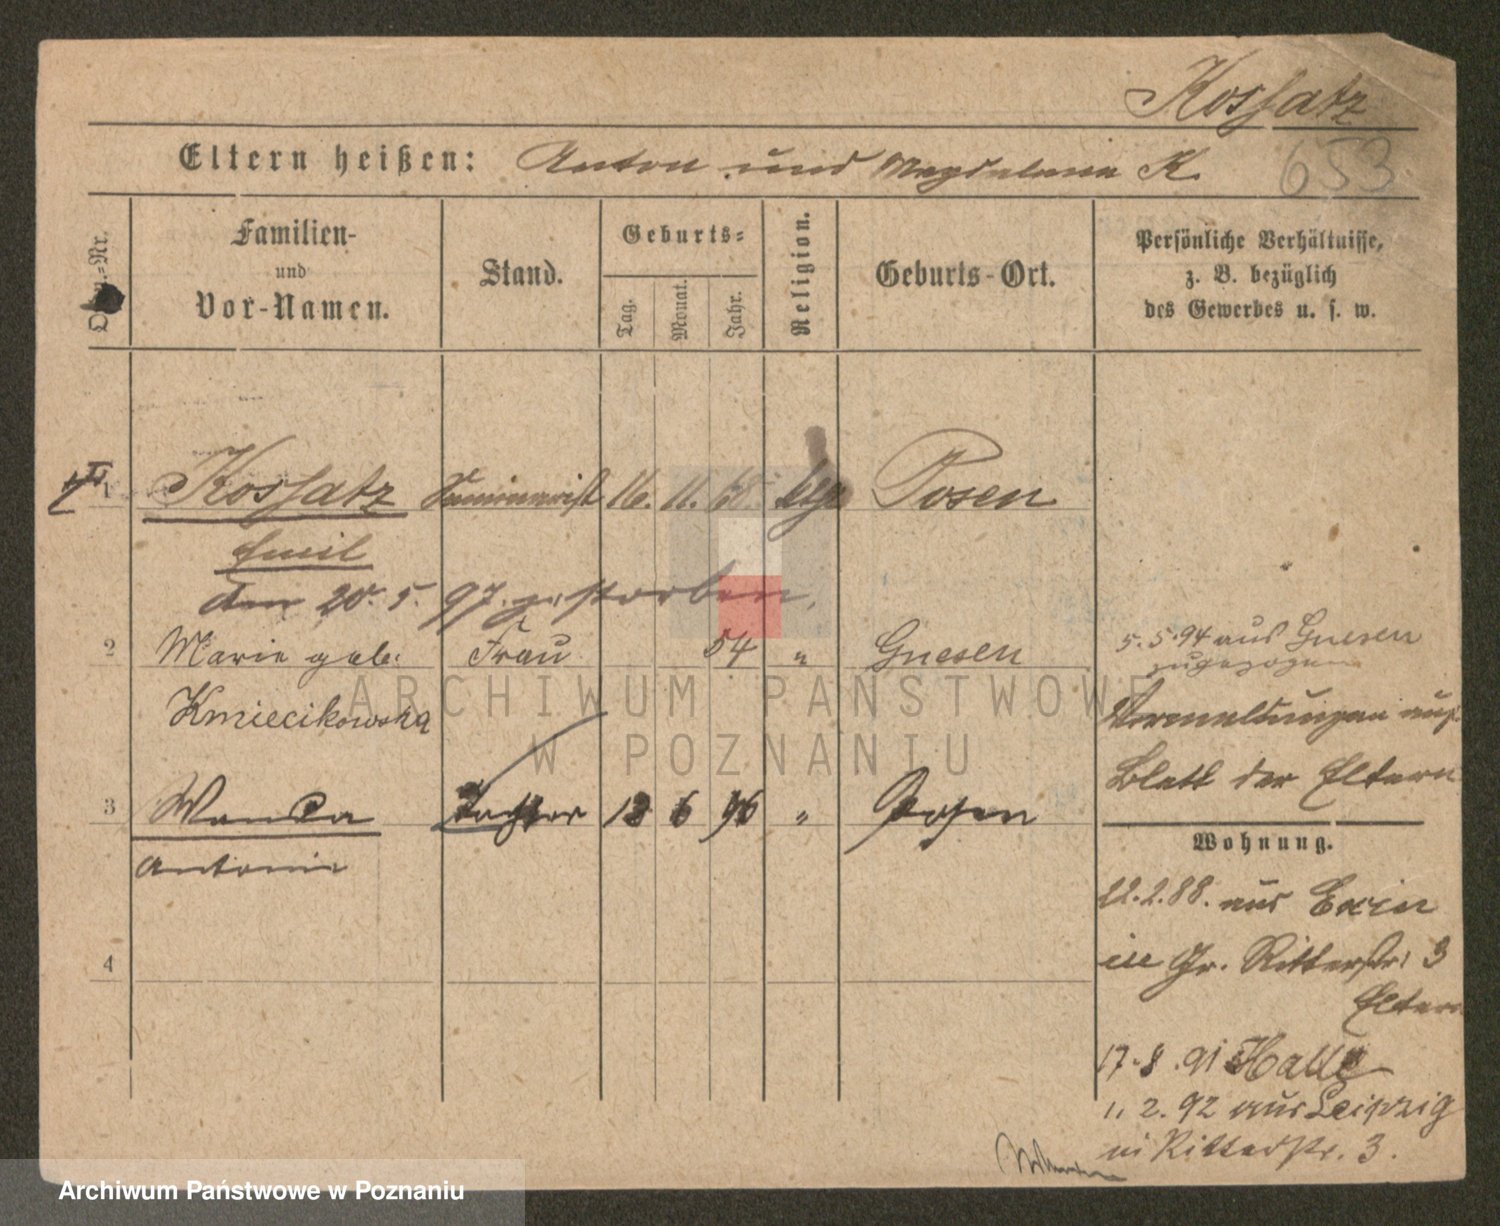 Kossatz
Eltern heißen: Anton und Magdalena K.
653
Familien- und Vor-Namen.
Stand.
Geburts-
Tag.
Monat.
Jahr.
Religion.
Geburts-Ort.
Persönliche Verhältnisse, z. B. bezüglich des Gewerbes u. s. w.
1 Kossatz Seminarist 16. 11. 68. Posen
Emil
den 20. 5. 97. gestorben.
2 Marie geb. Frau 54 " Gnesen
Kmiecikowska
5. 5. 94 aus Gnesen
zugezogen
Vermeldungen auf
Blatt der Eltern
3 Wanda Tochter 13 6 96 " Posen
Antonie
Wohnung.
12.2.88. aus Exin
in Gr. Ritterstr. 3
Eltern
4
17.8.91 Halle
11. 2. 92 aus Leipzig
in Ritterstr. 3.
ARCHIWUM PAŃSTWOWE
W POZNANIU
Archiwum Państwowe w Poznaniu